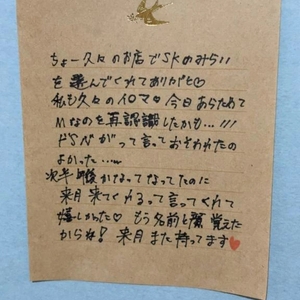 ちょー久々のお店でSKのみらい
を選んでくれてありがと♡
私も久々のイロマ♡今日あらためて
Mなのを再認識したかも…!!!
ドSNがって言っておそわれたの
よかった…
次半後かなってなってたのに
来月来てくれるって言ってくれて
嬉しかった♡もう名前と顔覚えた
からネ!来月また待ってます♥